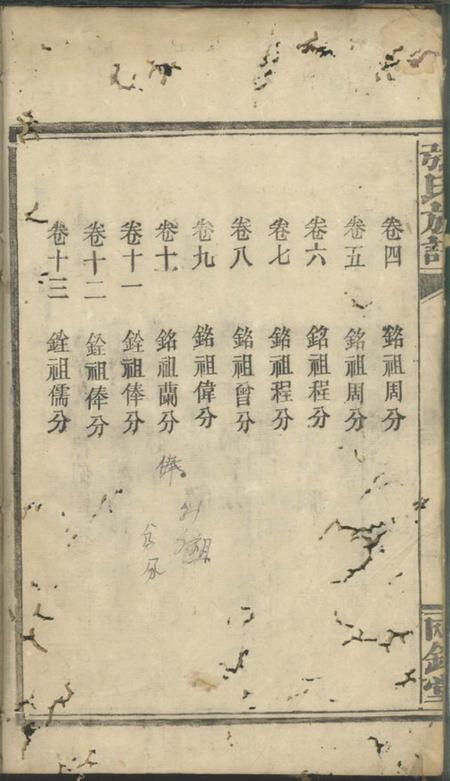 張氏族譜
卷四 銘祖周分
卷五 銘祖周分
卷六 銘祖程分
卷七 銘祖程分
卷八 銘祖曾分
卷九 銘祖偉分
卷十 銘祖蘭分
卷十一 銓祖俸分
卷十二 銓祖俸分
卷十三 銓祖儒分
俸